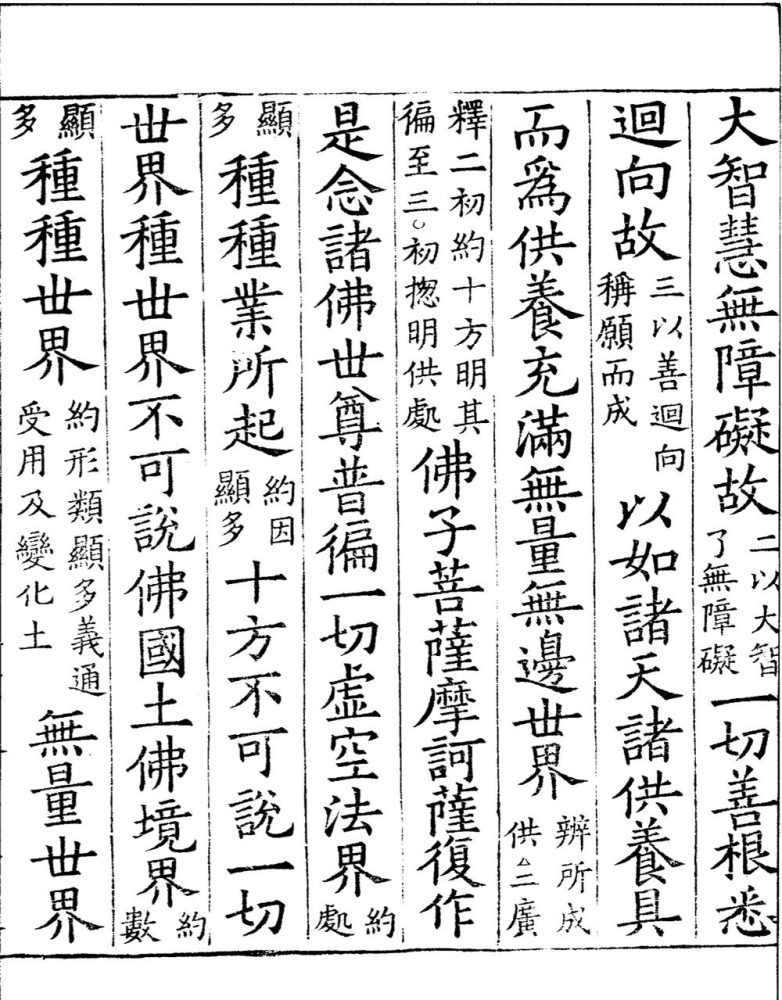 大智慧無障礙故二以大智了無障礙一切善根悉
迴向故三以善迴向稱願而成以如諸天諸供養具
而爲供養充滿無量無邊世界辨所成供△三廣
釋二初約十方明其徧至三○初揔明供處佛子菩薩摩訶薩復作
是念諸佛世尊普徧一切虛空法界約處
顯多種種業所起約因顯多十方不可說一切
世界種種世界不可說佛國土佛境界約數
顯多種種世界約形類顯多義通受用及變化土無量世界